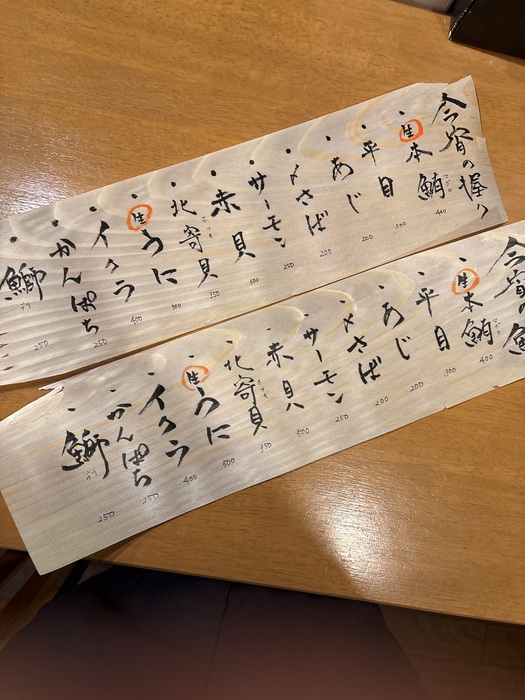 今宵の握り
・生本鮪 マグロ 400
・平目 300
・あじ 200
・〆さば 200
・サーモン 250
・赤貝 500
・北寄貝 ホッキ 350
・生うに 500
・イクラ 400
・かんぱち 250
・鰤 ブリ 250
今宵の
・生本鮪 マグロ 400
・平目 300
・あじ 200
・〆さば 200
・サーモン 250
・赤貝 500
・北寄貝 ホッキ 350
・生うに 500
・イクラ 400
・かんぱち 250
・鰤 ブリ 250